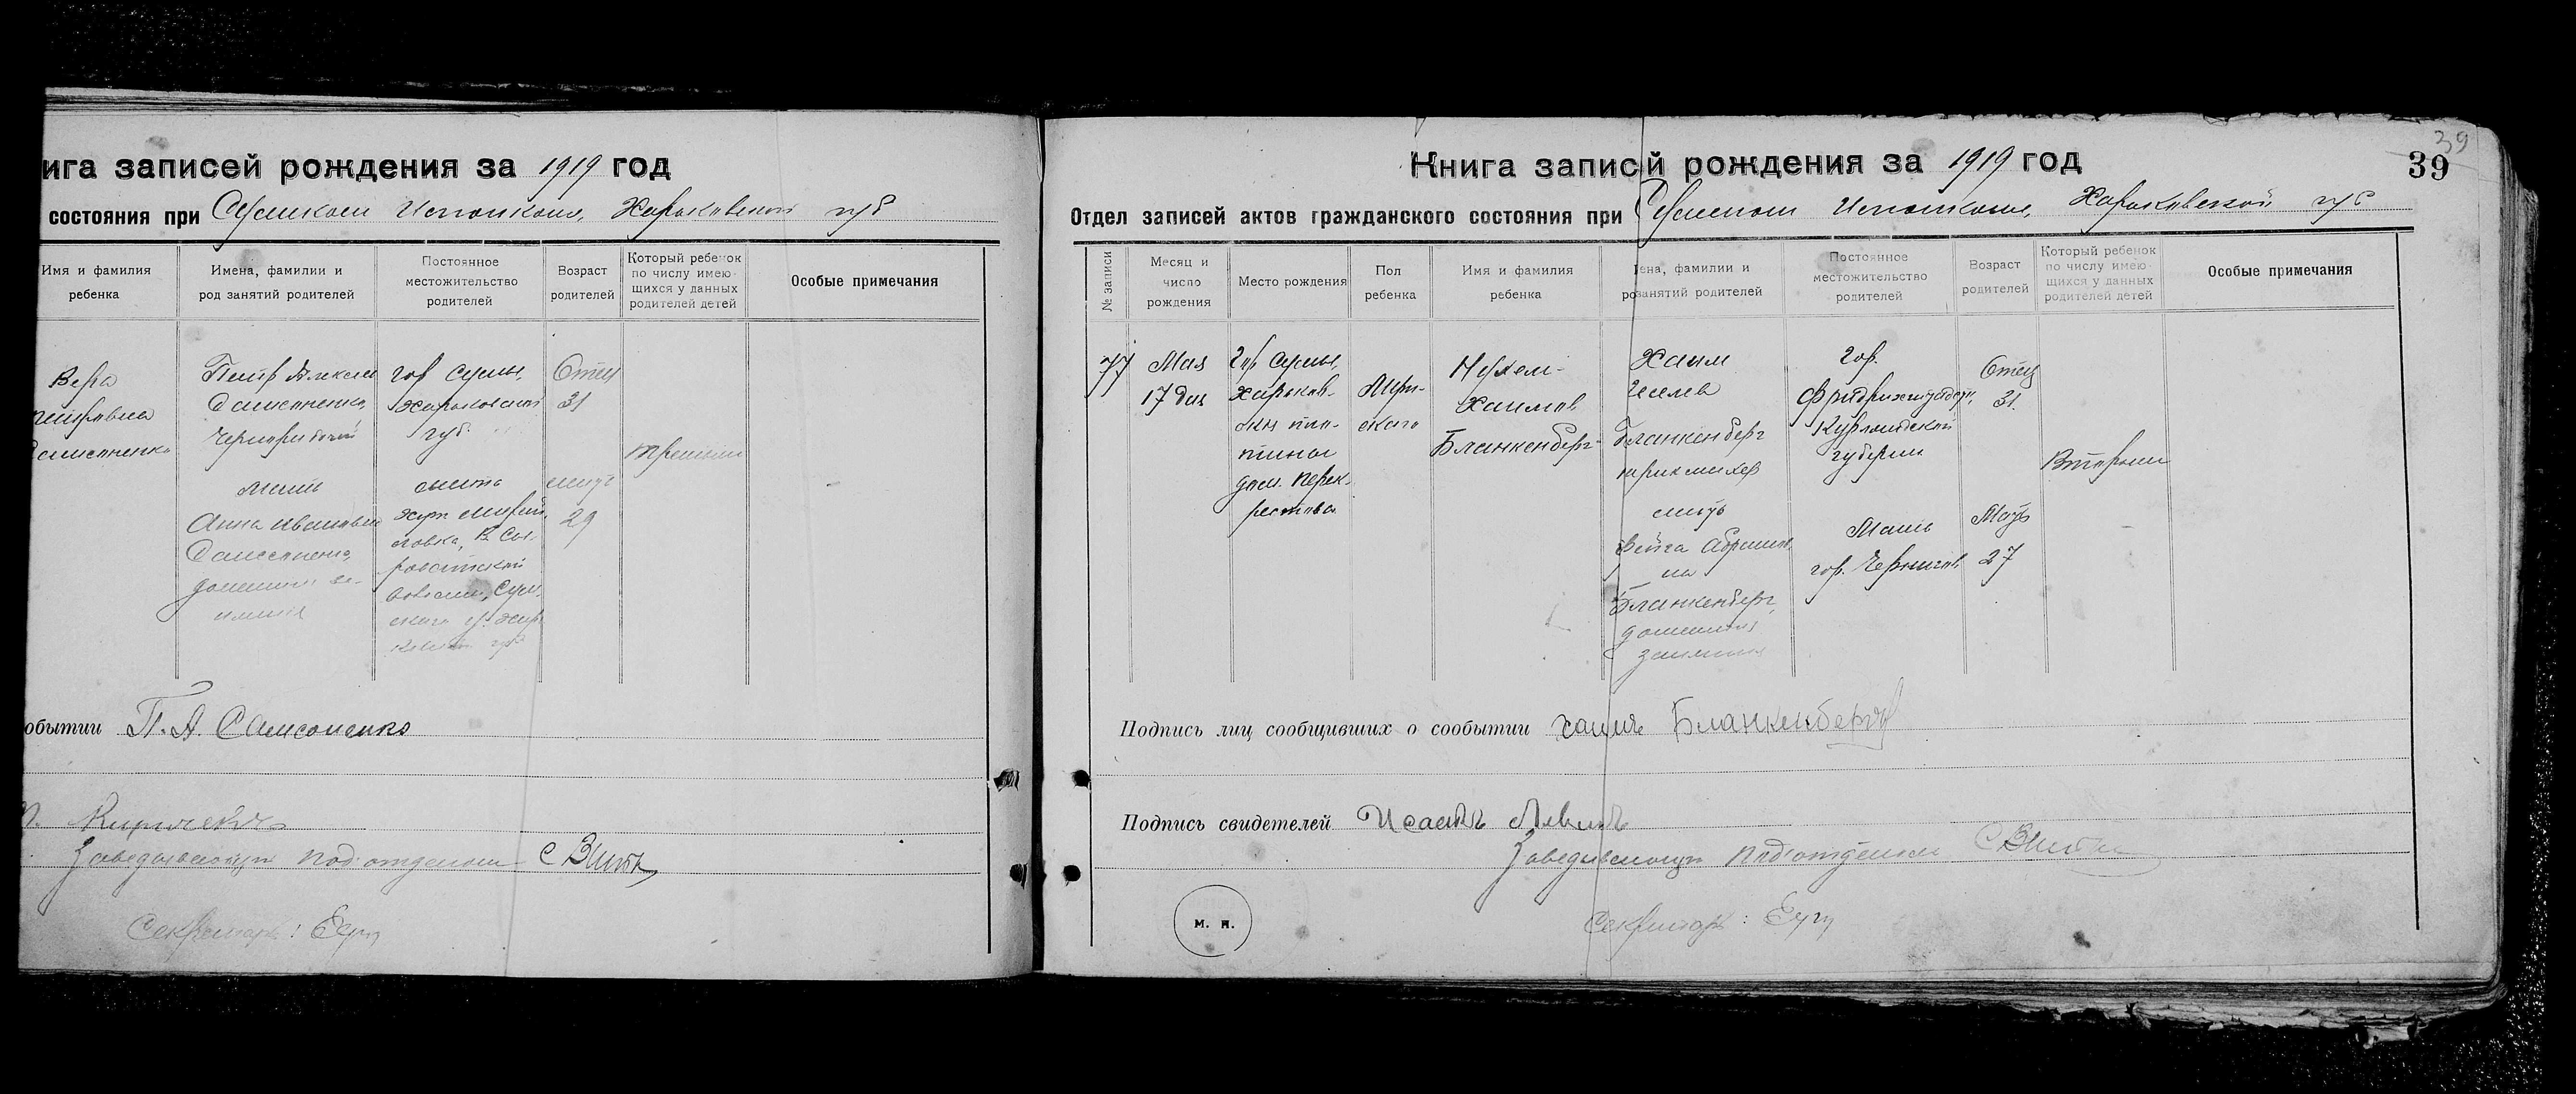 ига записей рождения за 1919 год
состояния при Сумском Исполкоме, Харьковской губ
Имя и фамилия
ребенка
Имена, фамилии и
род занятий родителей
Постоянное
местожительство
родителей
Возраст
родителей
Который ребенок
по числу имею-
щихся у данных
родителей детей
Особые примечания
Вера
Самсоненко
Петр Алексеев
Самсоненко,
Чернорабочий
мать
Анна Ивановна
Самсоненко,
домашние за-
нятия
гор Сумы,
Харьковской
губ.
мать
Отец
31
мать
29
третий
обытии П. А. Самсоненко
Заведывающий подотделом С Витт
Секретарь:
39
Книга записей рождения за 1919 год
39
Отдел записей актов гражданского состояния при Сумском Исполкоме, Харьковской губ
№ записи
Месяц и
число
рождения
Место рождения
Пол
ребенка
Имя и фамилия
ребенка
ена, фамилии и
ро занятий родителей
Постоянное
местожительство
родителей
Возраст
родителей
Который ребенок
по числу имею-
щихся у данных
родителей детей
Особые примечания
77
Мая
17 дня
гор Сумы,
Харьков-
дом. Перек-
рестова
Муж-
ского
Нухем-
Хаимов
Бланкенберг
Хаим
Геселев
Бланкенберг
парикмахер
мать
Фейга Абрамов
на
Бланкенберг,
домашния
занятия
гор.
Фридрихштадт,
Курляндской
губернии
Мать
гор. Чернигов
Отец
31.
Мать
27
Вторым
Подпись лиц сообщивших о сообытии Хаимъ Бланкенбергъ
Подпись свидетелей Исаакъ Левинъ
Заведывающий подотделом С Витт
м. п.
Секретарь: